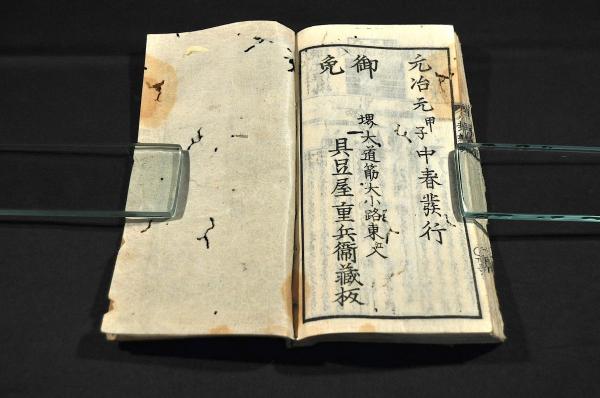 元治元甲子中春発行
御免
堺大道筋大小路東入
具足屋重兵衞藏板